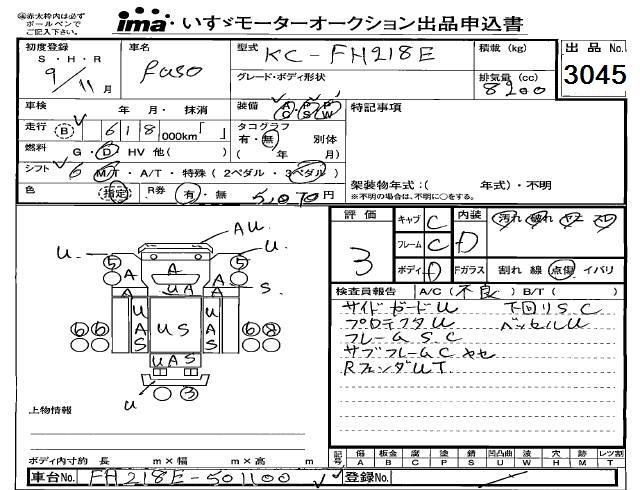 ㊟赤太枠内は必ず
ボールペンで
ご記入下さい。
ima いすゞモーターオークション出品申込書
初度登録
S・H・R
9/11月
車名
Fuso
型式
KC-FH218E
グレード・ボディ形状
積載 (kg)
排気量 (cc)
8200
出品No.
3045
車検 年 月・抹消
走行 B 618 000km「 」
燃料 G・D・HV 他( )
シフト 6 M/T・A/T・特殊 (2ペダル・3ペダル)
色 指定 R券 有・無 5,070円
装備 AC・PS・PW
タコグラフ
有・無 別体
( 年 月)
特記事項
架装物年式:( 年式)・不明
※不明の場合は、不明に○をする。
評価
3
キャブ C
フレーム C
ボディ D
内装 D
汚れ 破れ
Fガラス 割れ 線 点傷 イバリ
検査員報告 A/C (不良) B/T ( )
サイドガードU 下回りSC
プロテクタU ベッセルU
フレームSC
サブフレームC ヤセ
RフェンダUT
AU
U U
5 A A 5
UA S
A A
6 6 UAS US UAS 6 8
UAS
U 3
上物情報
ボディ内寸約 長 m×幅 m×高 m
記号 傷A 板金B 腐C 塗P 錆S 凹凸曲U 波W 穴H 跡M レツ割T
車台No. FH218E-501100 登録No.